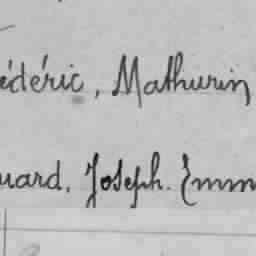 édéric, Mathurin
uard, Joseph. Emm